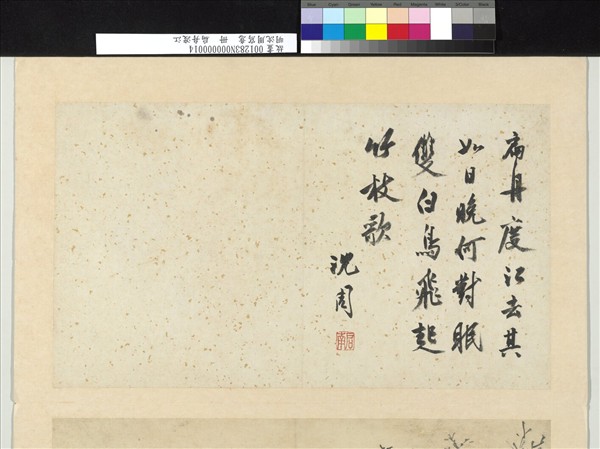 扁舟度江去其
如日晚何對眠
雙白鳥飛起
竹枝歌
沈周
啟南
故畫 001283N000000014
明沈周寫意 冊 扁舟渡江
Blue Cyan Green Yellow Red Magenta White 3/Color Black